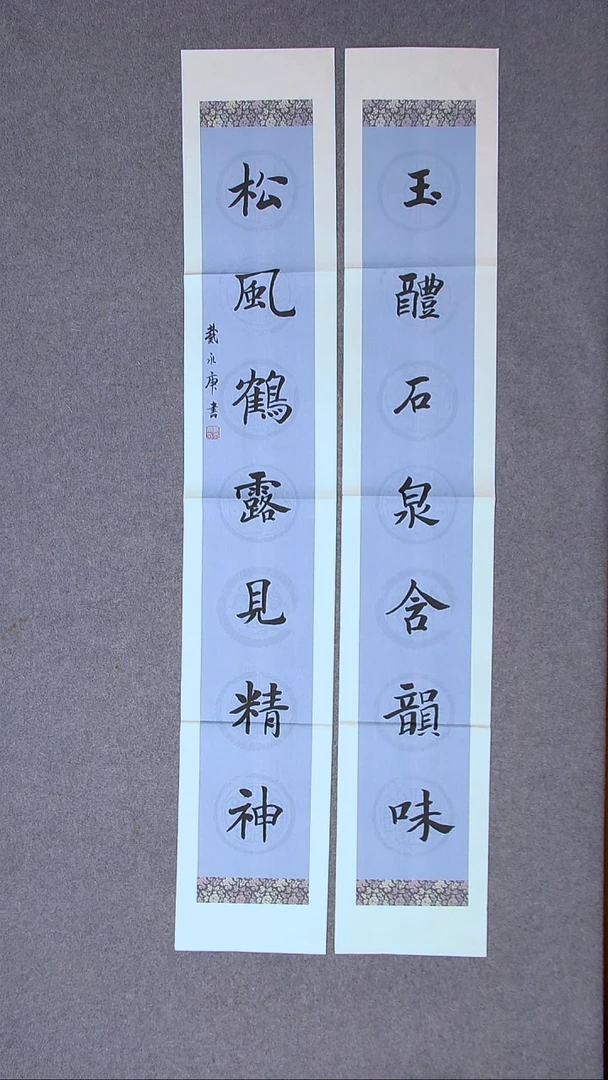 玉醴石泉含韻味
松風鶴露見精神
戴永庚書